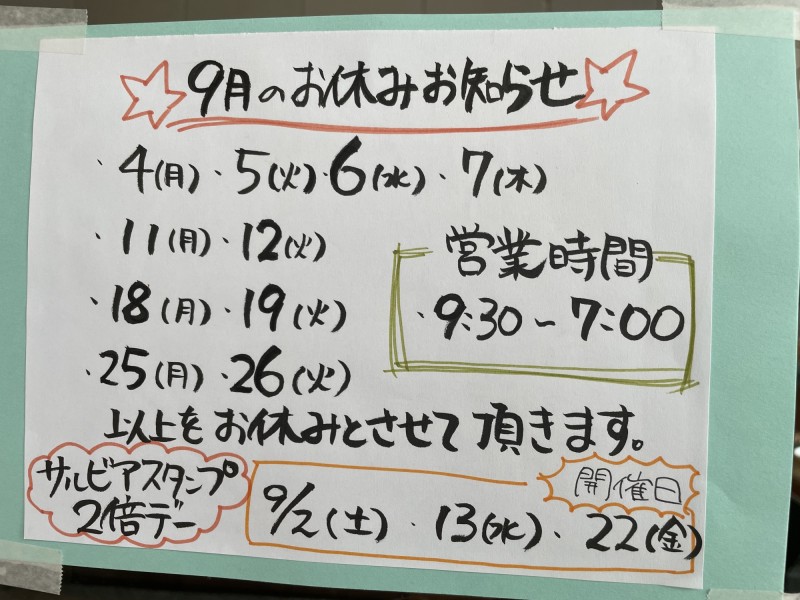 9月のお休みお知らせ
・4(月)・5(火)・6(水)・7(木)
・11(月)・12(火)
・18(月)・19(火)
・25(月)・26(火)
営業時間
・9:30～7:00
以上をお休みとさせて頂きます。
サルビアスタンプ
2倍デー
開催日
9/2(土)・13(水)・22(金)